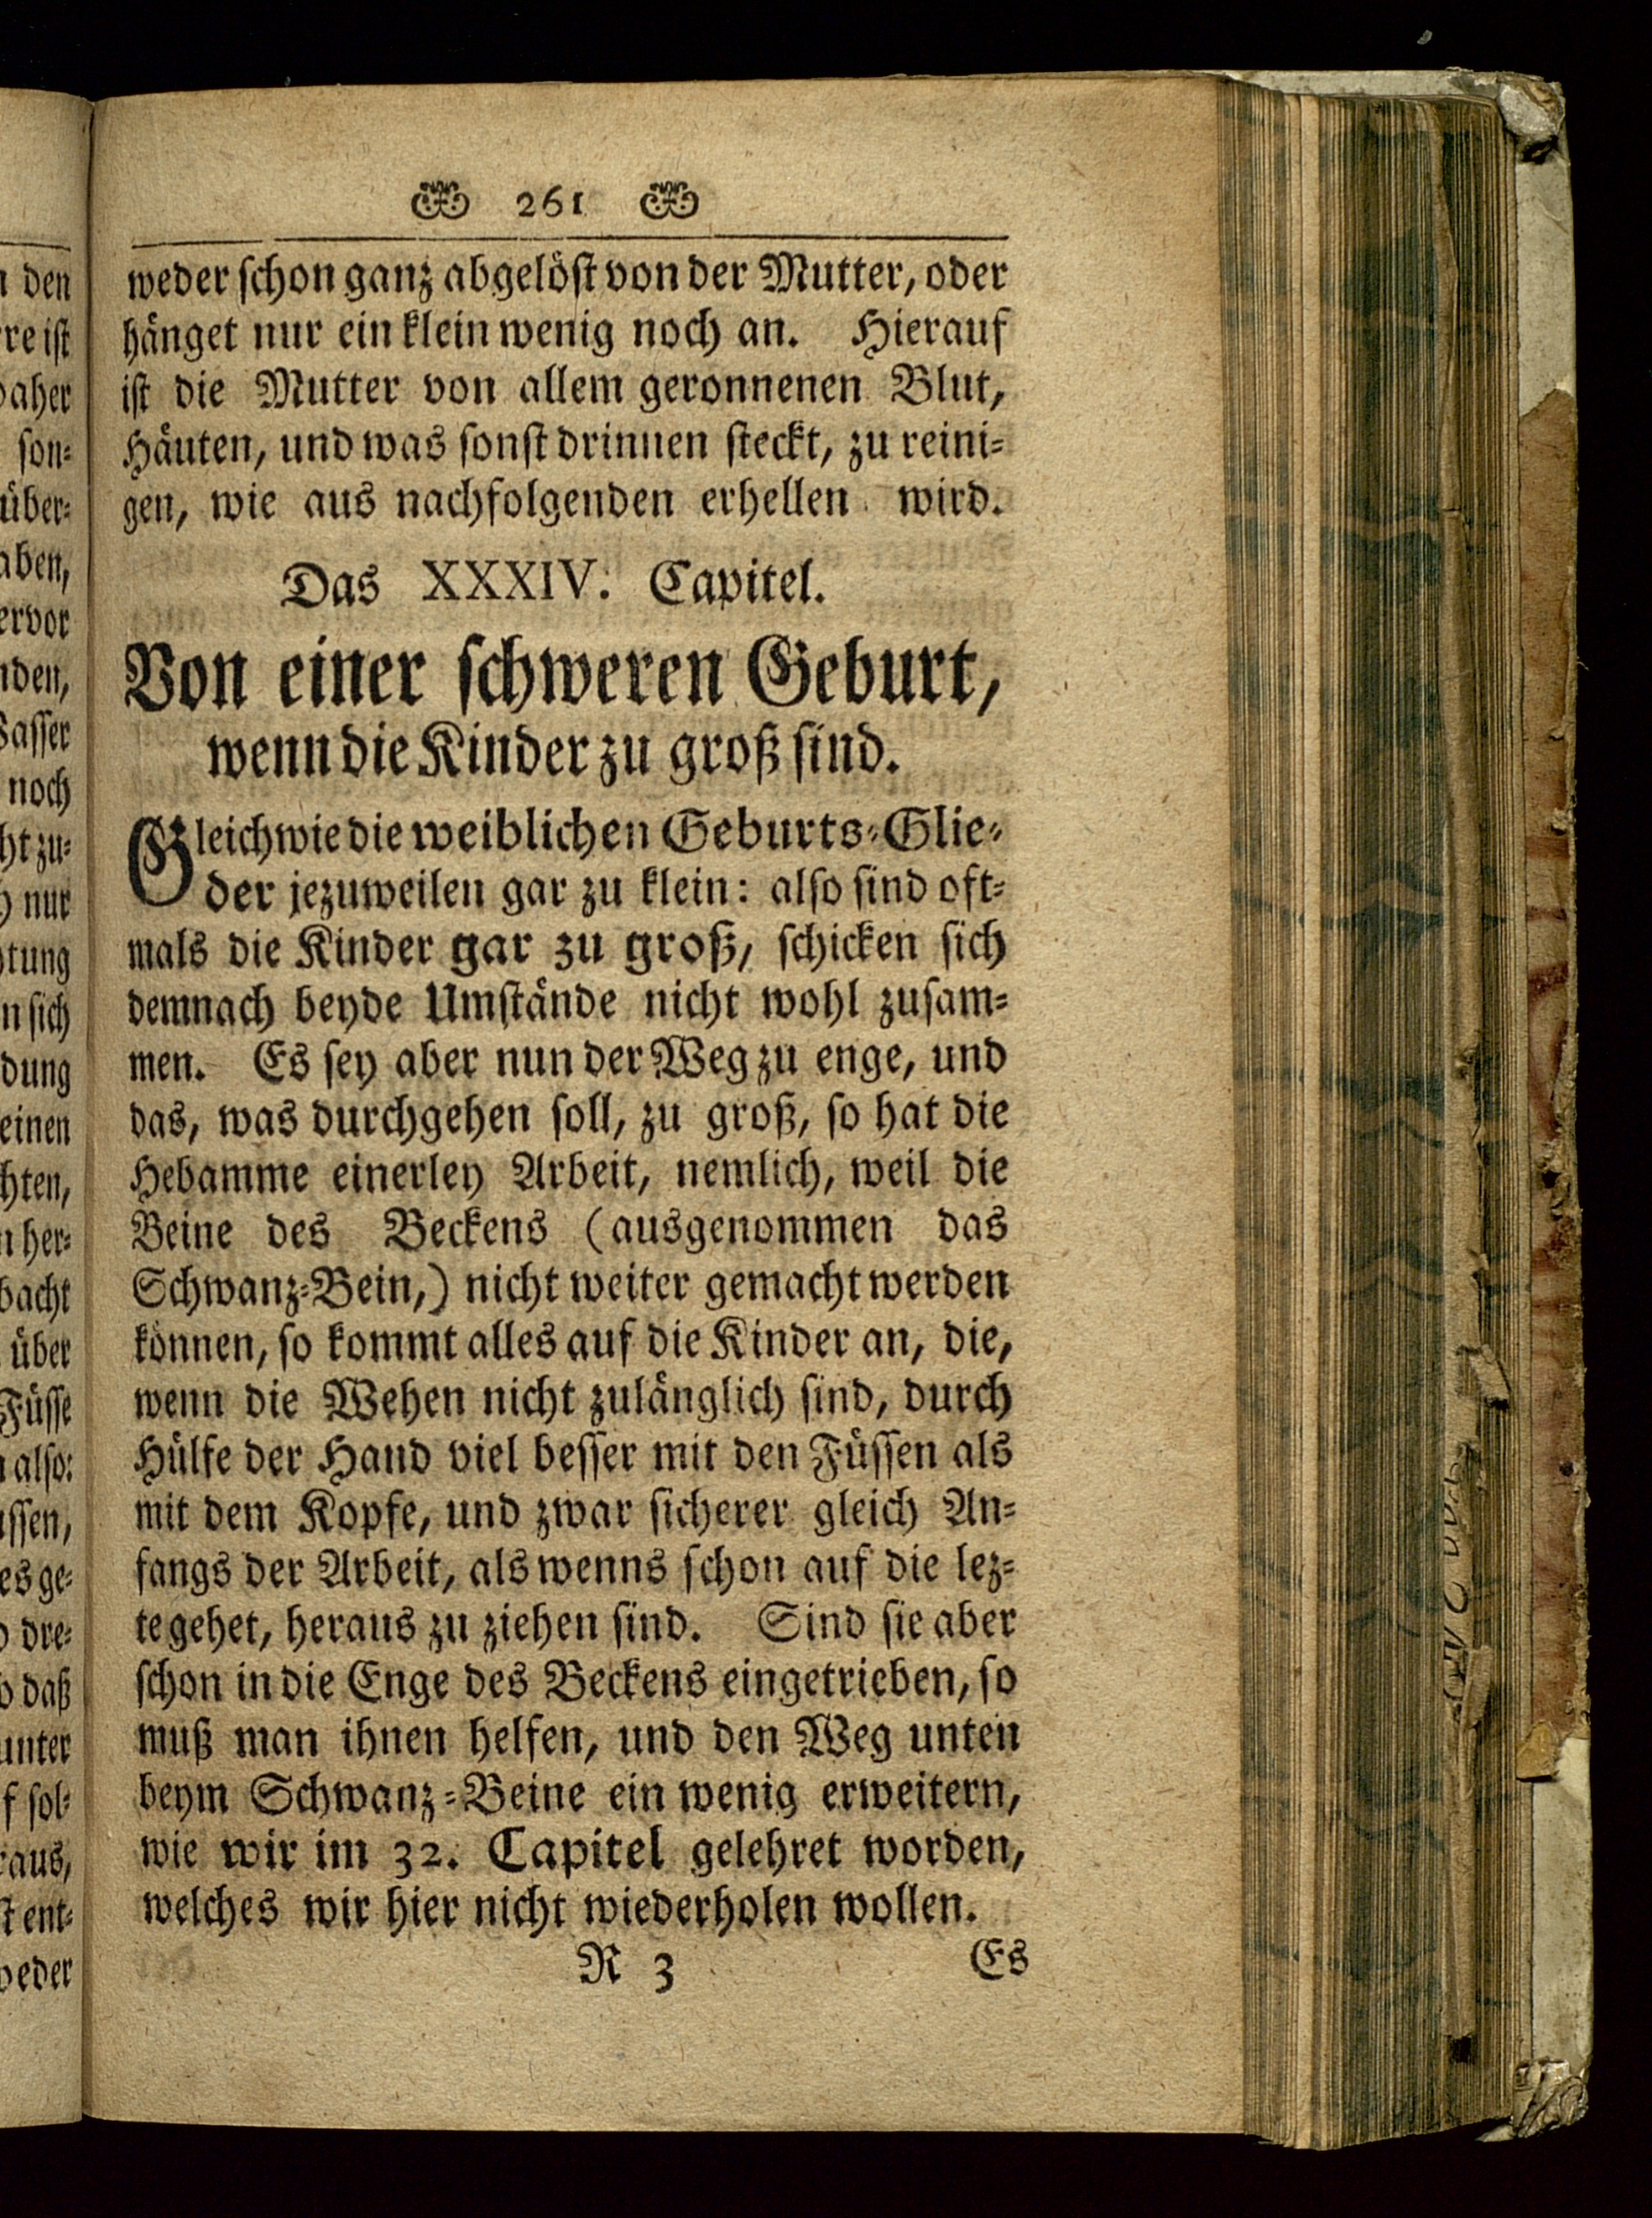 261
weder schon ganz abgelöst von der Mutter, oder
hänget nur ein klein wenig noch an. Hierauf
ist die Mutter von allem geronnenen Blut,
Häuten, und was sonst drinnen steckt, zu reini-
gen, wie aus nachfolgenden erhellen wird.
Das XXXIV. Capitel.
Von einer schweren Geburt,
wenn die Kinder zu groß sind.
Gleichwie die weiblichen Geburts-Glie-
der jezuweilen gar zu klein: also sind oft-
mals die Kinder gar zu groß, schicken sich
demnach beyde Umstände nicht wohl zusam-
men. Es sey aber nun der Weg zu enge, und
das, was durchgehen soll, zu groß, so hat die
Hebamme einerley Arbeit, nemlich, weil die
Beine des Beckens (ausgenommen das
Schwanz-Bein,) nicht weiter gemacht werden
können, so kommt alles auf die Kinder an, die,
wenn die Wehen nicht zulänglich sind, durch
Hülfe der Hand viel besser mit den Füssen als
mit dem Kopfe, und zwar sicherer gleich An-
fangs der Arbeit, als wenns schon auf die lez-
te gehet, heraus zu ziehen sind. Sind sie aber
schon in die Enge des Beckens eingetrieben, so
muß man ihnen helfen, und den Weg unten
beym Schwanz-Beine ein wenig erweitern,
wie wir im 32. Capitel gelehret worden,
welches wir hier nicht wiederholen wollen.
R 3 Es